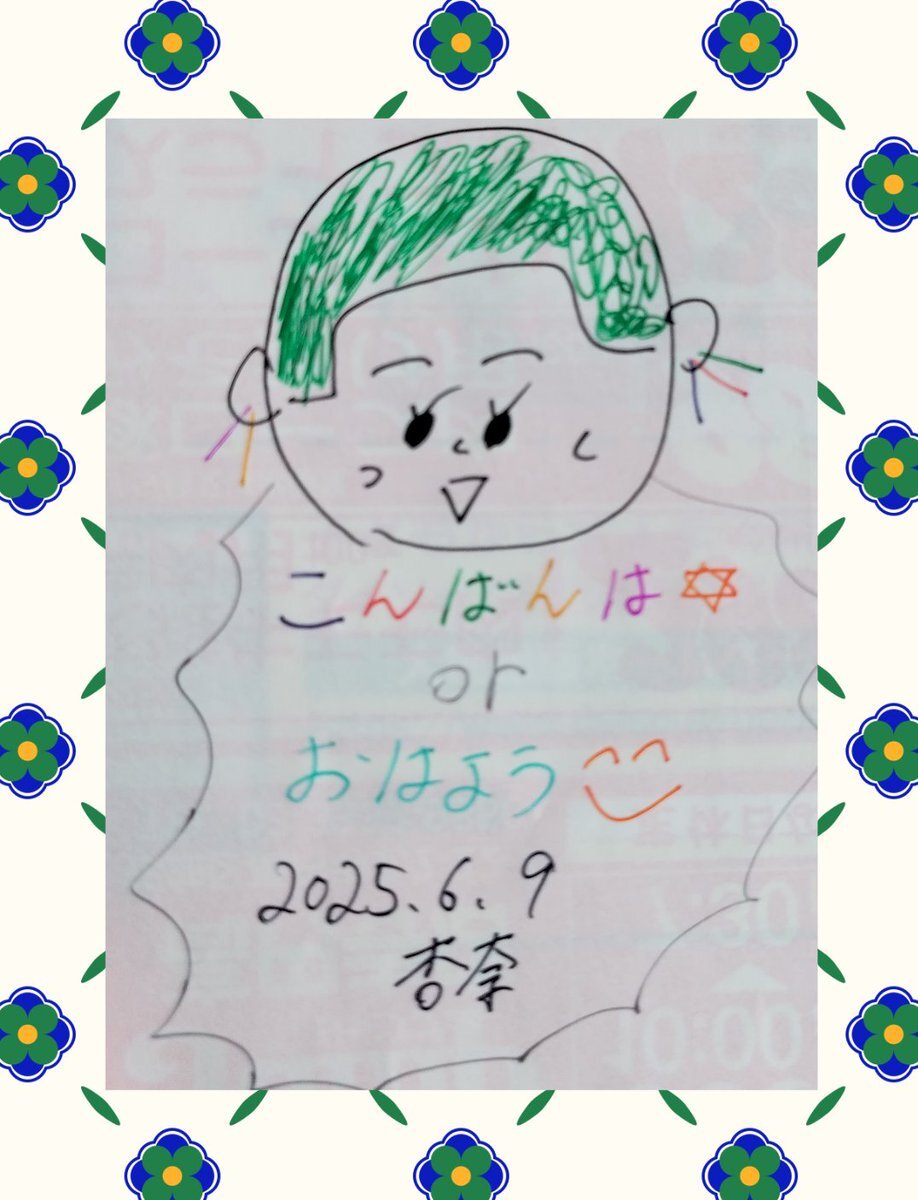 こんばんは✡
or
おはよう
2025.6.9
杏奈